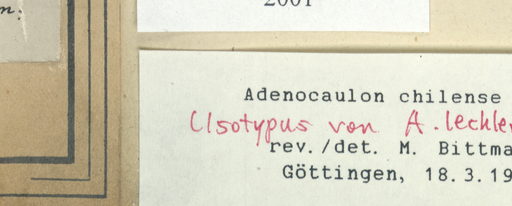 n:
2001
Adenocaulon chilense
(Isotypus von A. lechler
rev./det. M. Bittma
Göttingen, 18.3.19